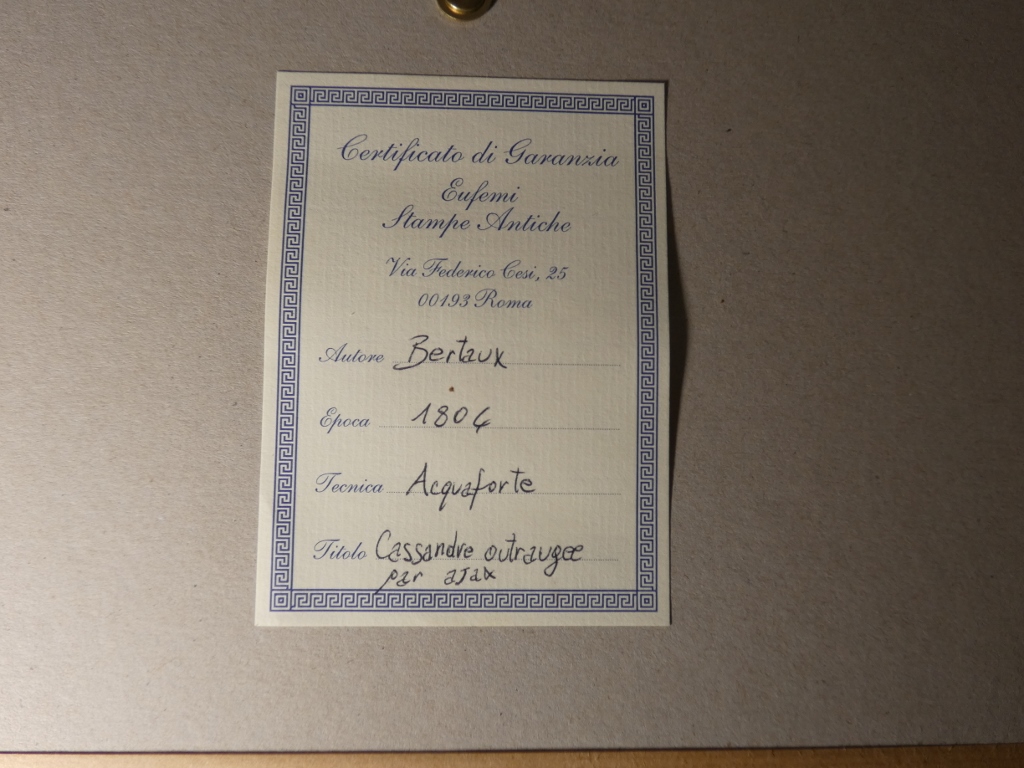 Certificato di Garanzia
Eufemi
Stampe Antiche
Via Federico Cesi, 25
00193 Roma
Autore Bertaux
Epoca 1804
Tecnica Acquaforte
Titolo Cassandre outraugee
par ajax